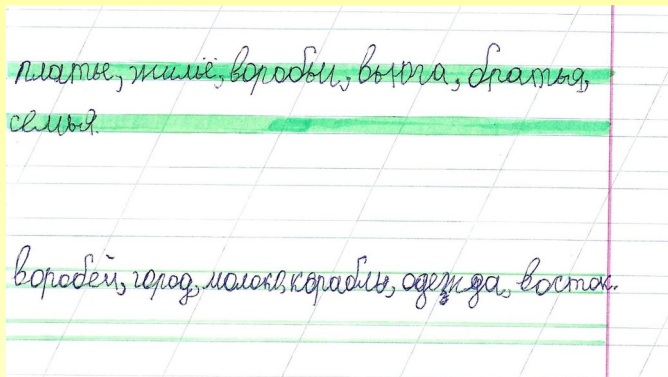 платье, жильё, воробьи, вьюга, братья,
семья.
воробей, город, молоко, корабль, одежда, восток.